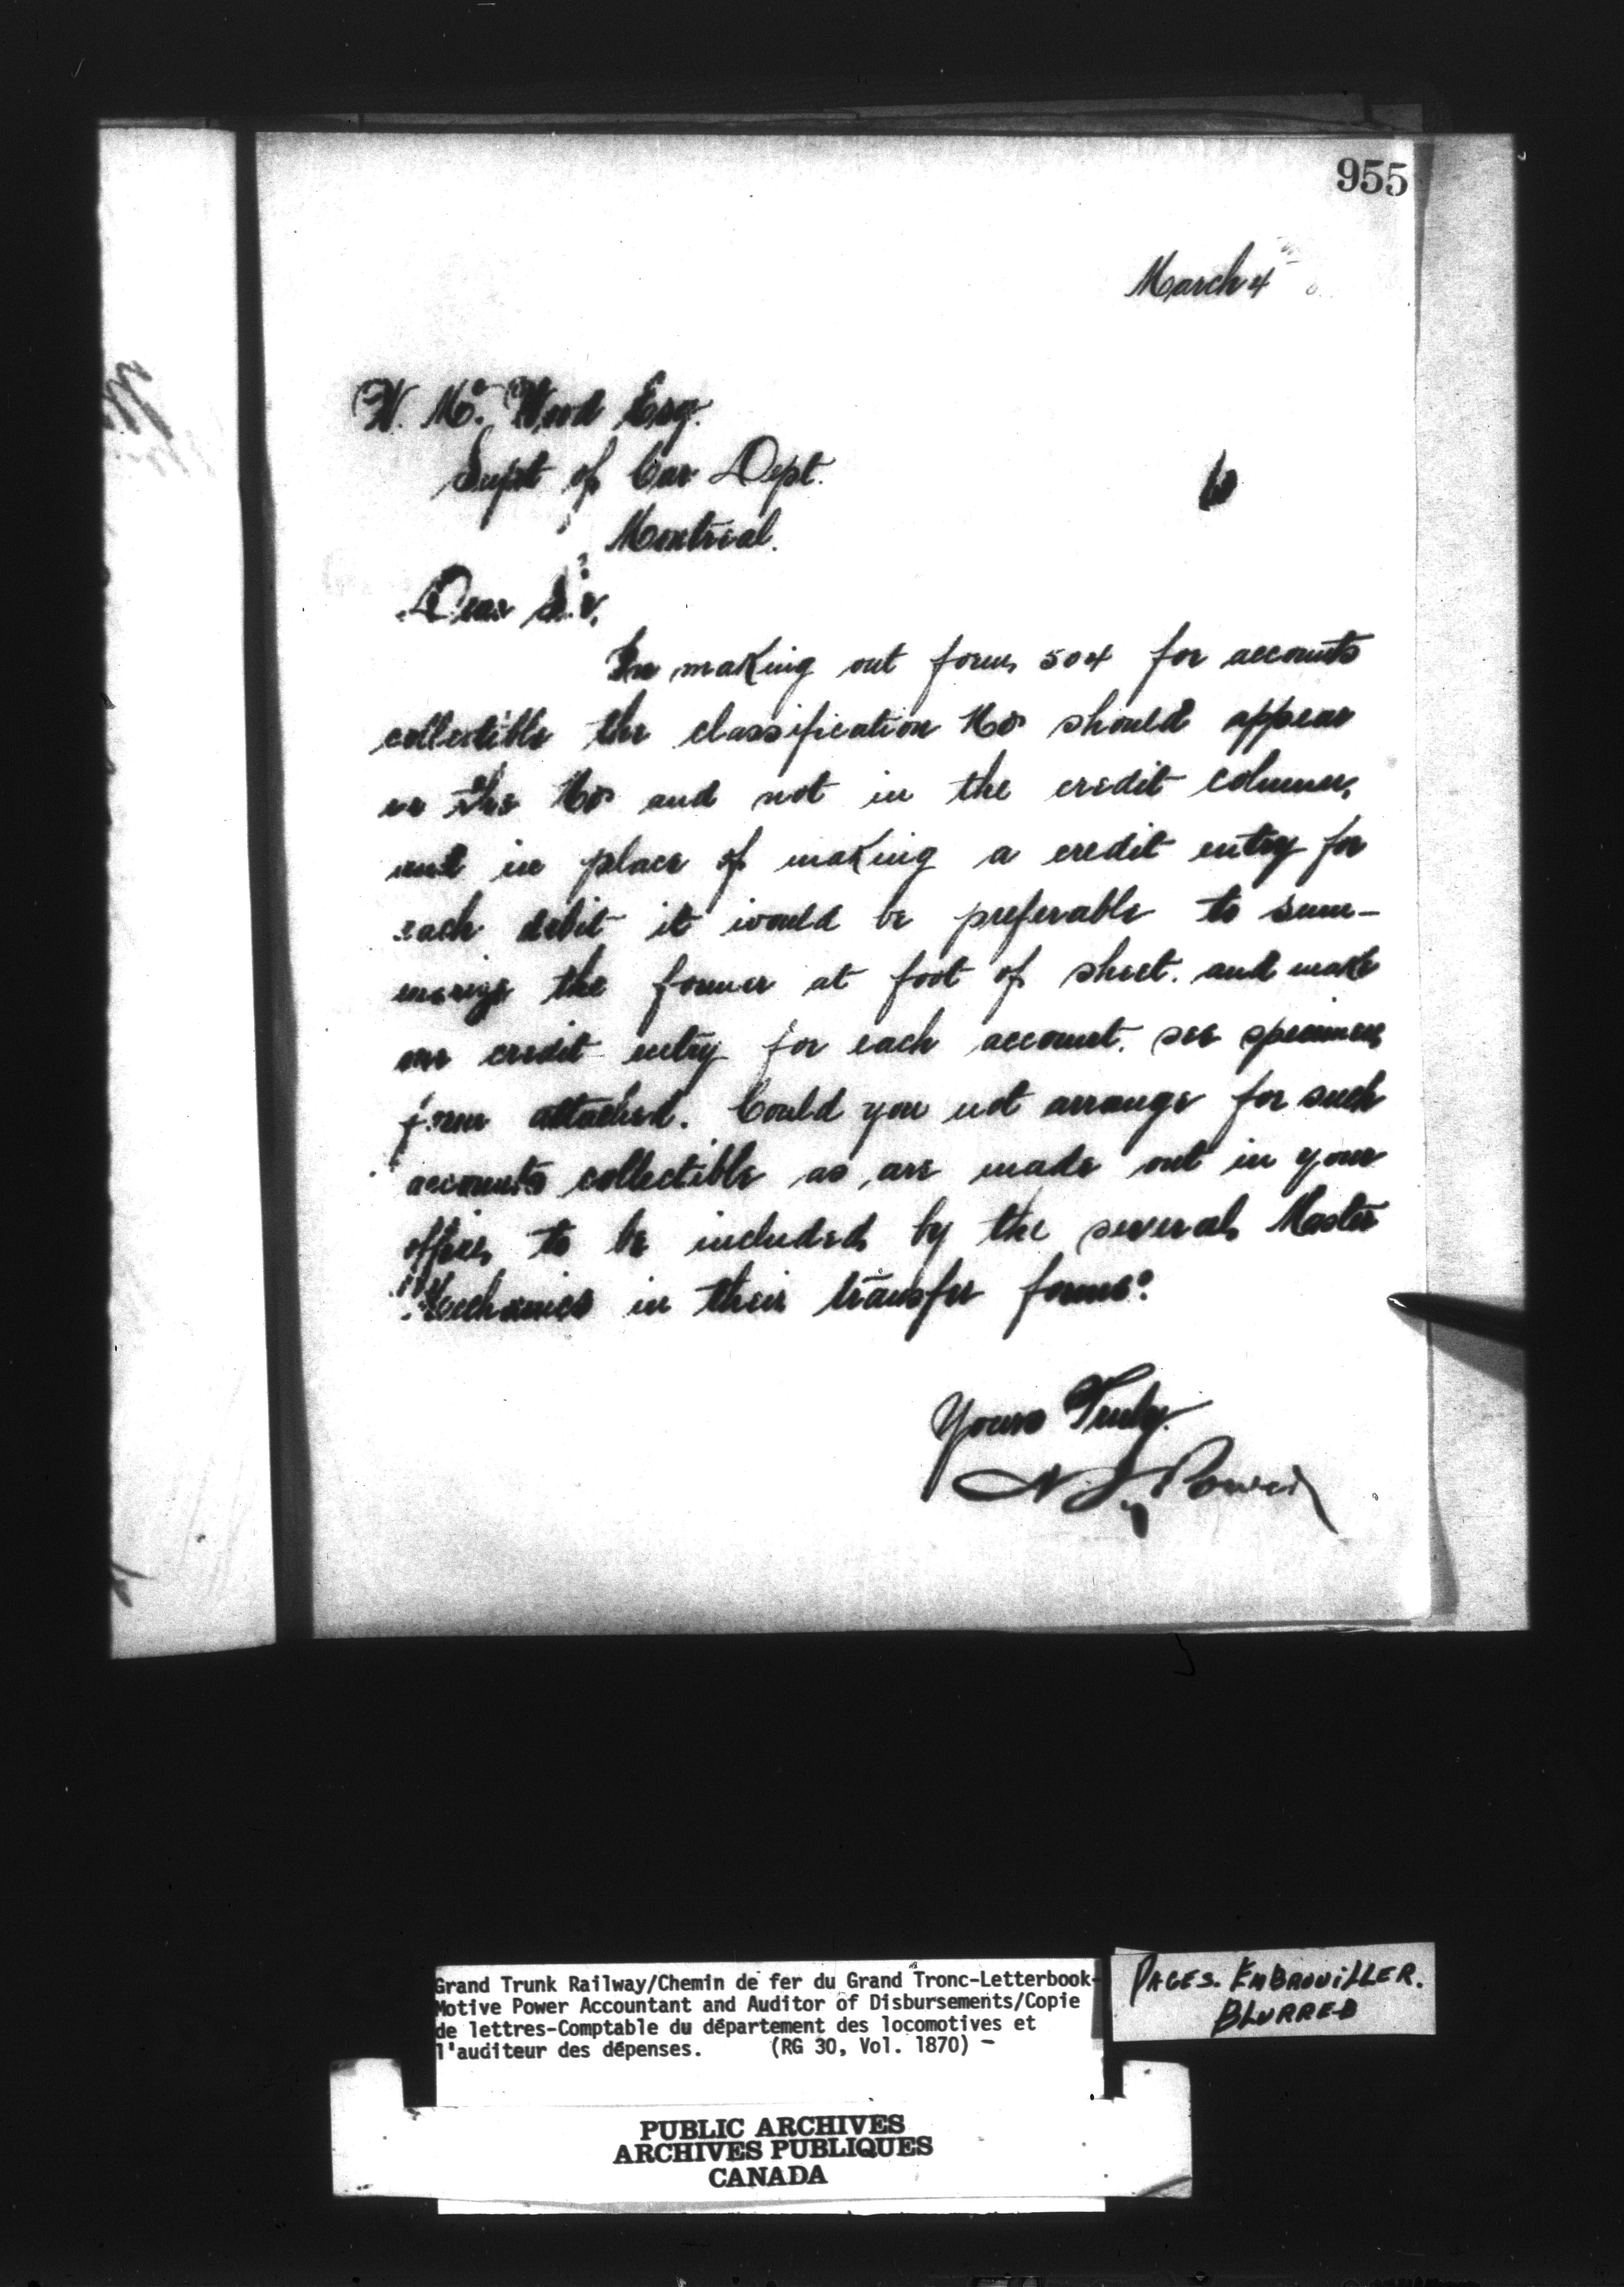 955
March 4th
W. Mc. Wood Esq.
Supt of Car Dept.
Montreal.
Dear Sir,
In making out form 504 for accounts
collectible the classification No should appear
in the No and not in the credit column,
and in place of making a credit entry for
each debit it would be preferable to sum-
marize the former at foot of sheet. and make
one credit entry for each account. see specimen
form attached. Could you not arrange for such
accounts collectible as are made out in your
office, to be included by the several Master
Mechanics in their transfer forms?
Yours Truly.
N J Power
Grand Trunk Railway/Chemin de fer du Grand Tronc-Letterbook-
Motive Power Accountant and Auditor of Disbursements/Copie
de lettres-Comptable du département des locomotives et
l'auditeur des dépenses. (RG 30, Vol. 1870) -
PAGES. EMBROUILLER.
BLURRED
PUBLIC ARCHIVES
ARCHIVES PUBLIQUES
CANADA